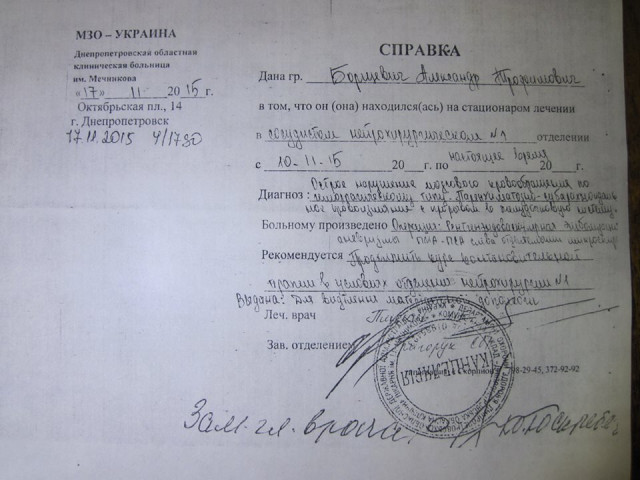 МЗО – УКРАИНА
Днепропетровская областная
клиническая больница
им. Мечникова
«17» 11 2015 г.
Октябрьская пл., 14
г. Днепропетровск
17.11.2015 4/1780
СПРАВКА
Дана гр. Александр Трофимович
в том, что он (она) находился(ась) на стационаром лечении
в сосудистом нейрохирургическом №1 отделении
с 10-11-15 20 г. по настоящее время 20 г.
Диагноз: Острое нарушение мозгового кровообращения по
геморрагическому типу. Паренхиматозно-субарахноидаль
ное кровоизлияние с прорывом в желудочковую систему.
Больному произведено Операция:
аневризмы ПМА-ПСА слева
Рекомендуется Продолжить курс восстановительной
терапии в условиях отделения нейрохирургии №1
Выдана: для помощи
Леч. врач
Зав. отделением
КАНЦЕЛЯРІЯ
98-29-45, 372-92-92
Зам. гл. врача